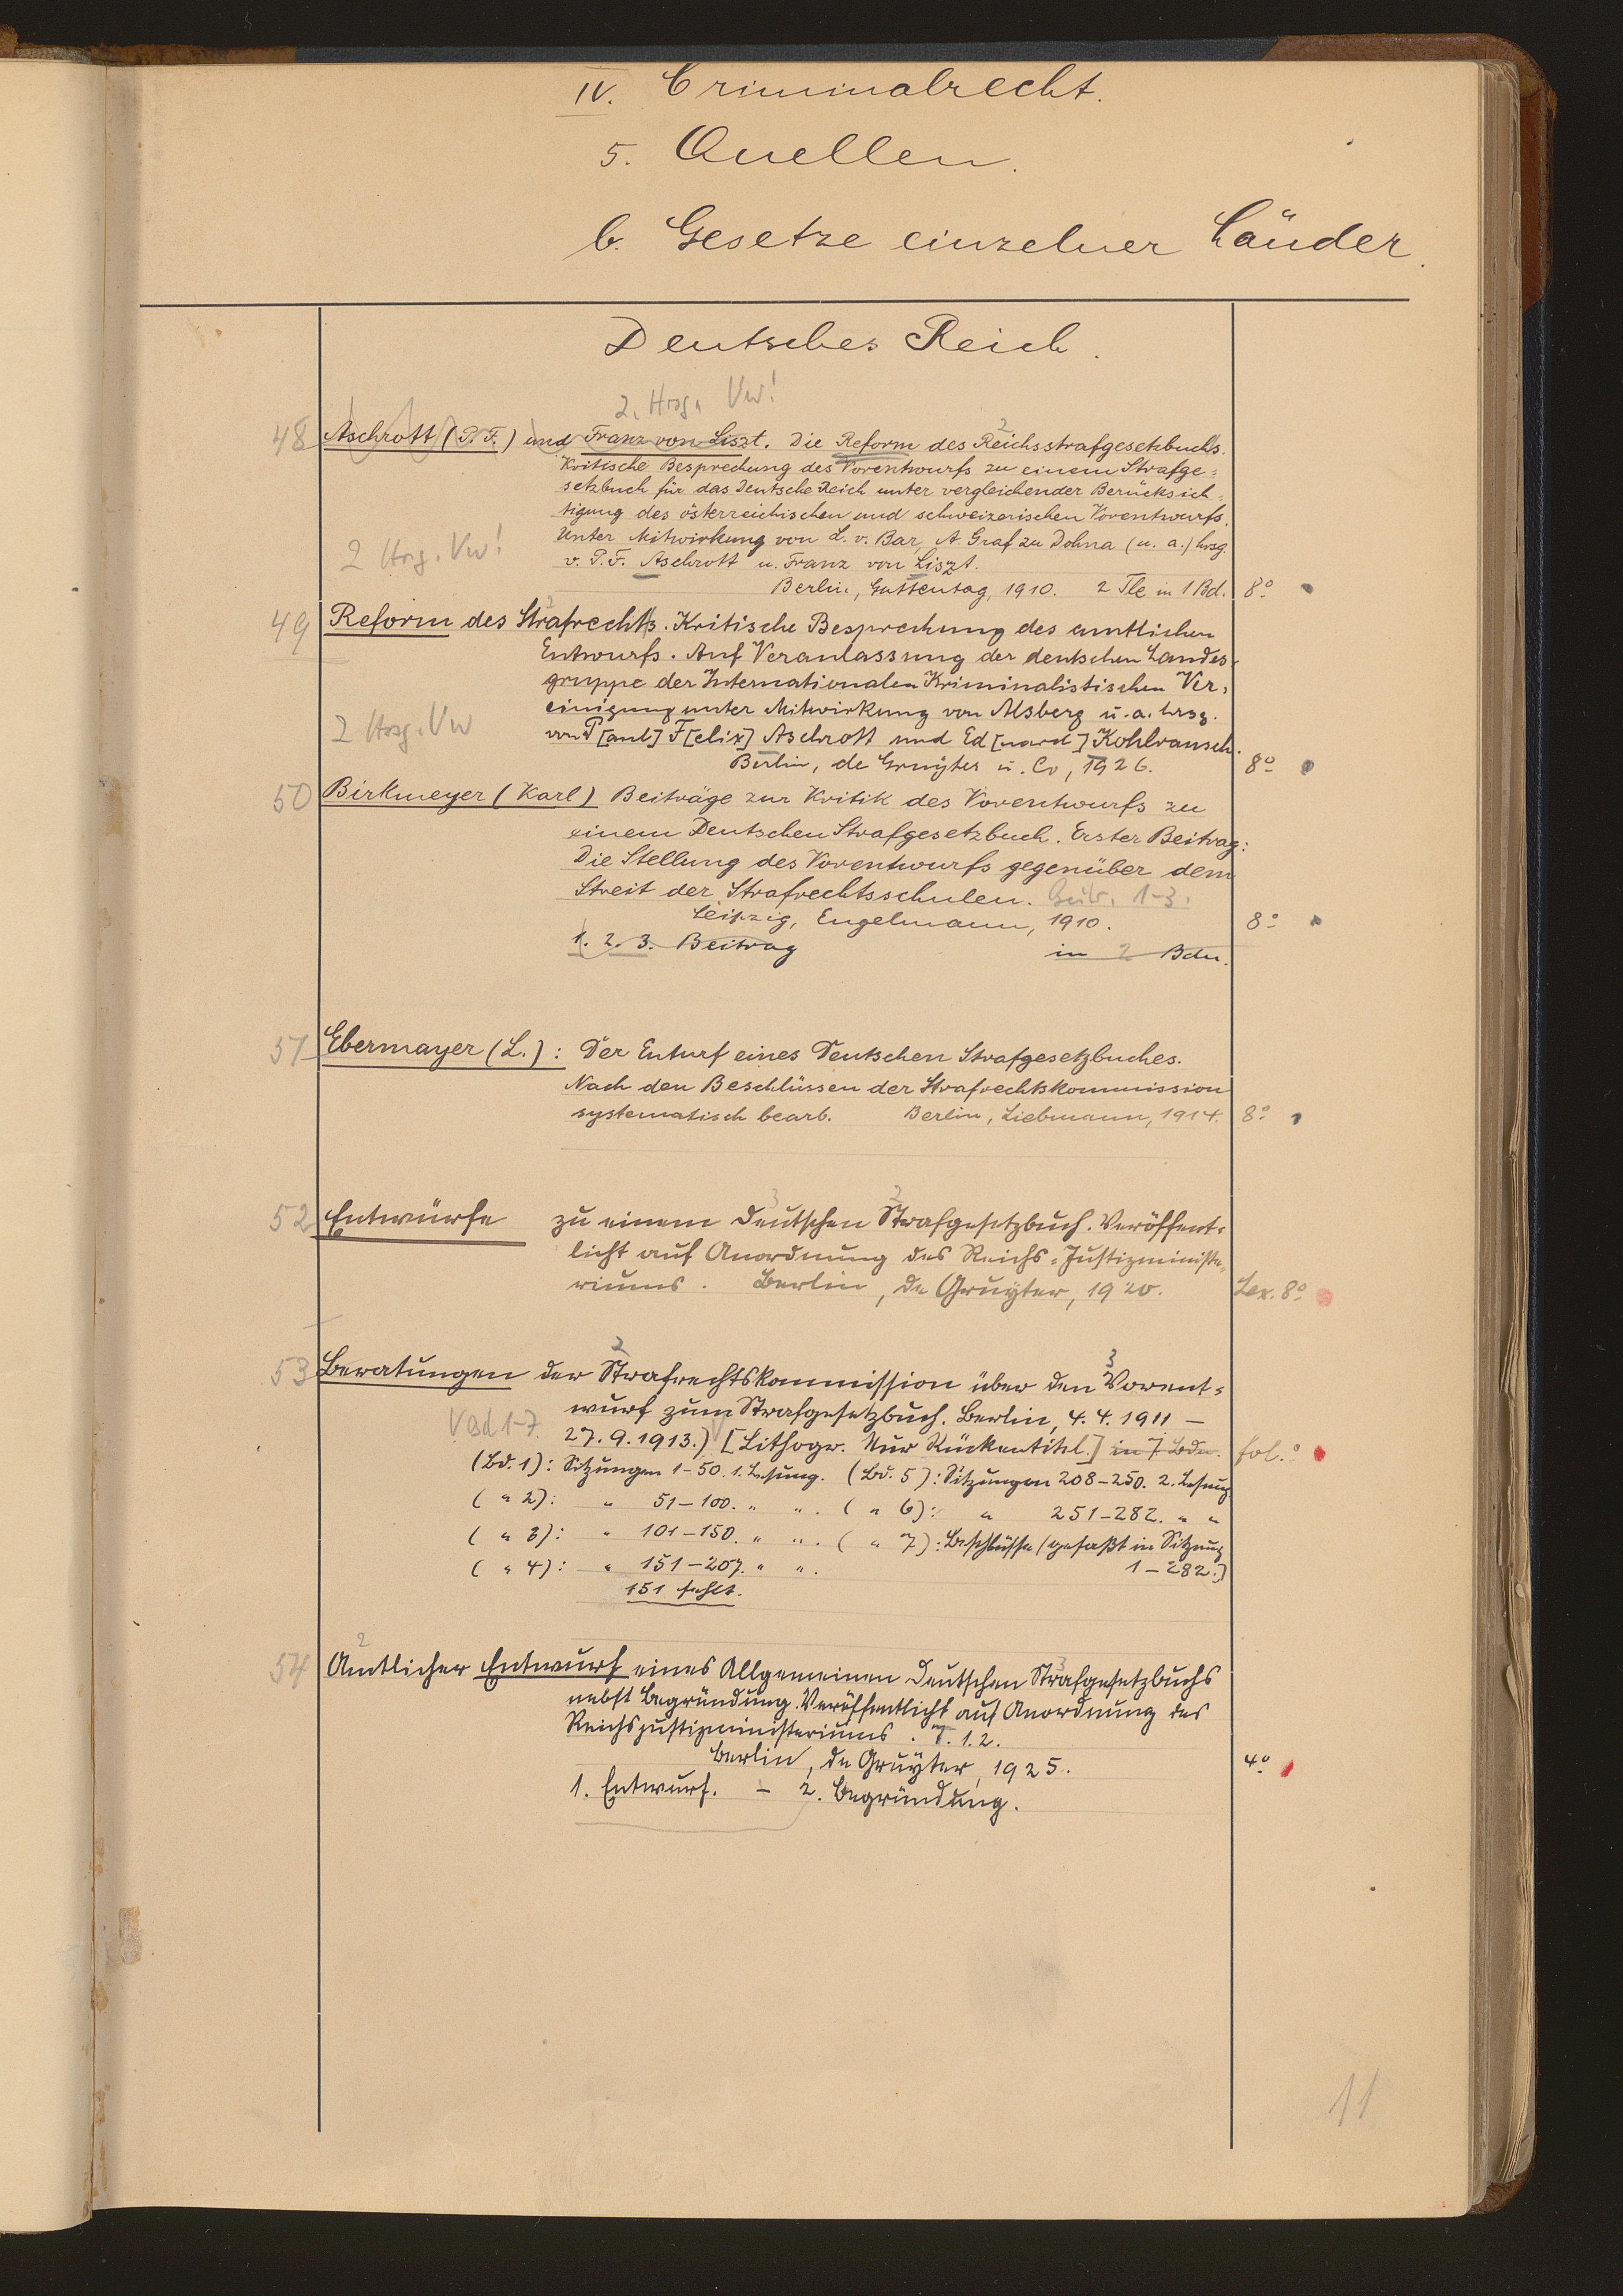 IV. Criminalrecht.
5. Quellen.
b. Gesetze einzelner Länder.
Deutsches Reich.
2. Hrsg. Vw!
48 Aschrott (P. F.) und Franz von Liszt. Die Reform des Reichsstrafgesetzbuchs.
Kritische Besprechung des Vorentwurfs zu einem Strafge=
setzbuch für das Deutsche Reich unter vergleichender Berücksich=
tigung des österreichischen und schweizerischen Vorentwurfs.
Unter Mitwirkung von L. v. Bar, A. Graf zu Dohna (u. a.) hrsg.
2 Hrsg. Vw!
v. P. F. Aschrott u. Franz von Liszt.
Berlin, Guttentag, 1910. 2 Tle in 1 Bd. 8°
49 Reform des Strafrechts. Kritische Besprechung des amtlichen
Entwurfs. Auf Veranlassung der deutschen Landes=
gruppe der Internationalen Kriminalistischen Ver=
einigung unter Mitwirkung von Alsberg u. a. hrsg.
2 Hrsg. Vw
von P[aul] F[elix] Aschrott und Ed[uard] Kohlrausch.
Berlin, de Gruyter u. Co, 1926. 8°
50 Birkmeyer (Karl) Beiträge zur Kritik des Vorentwurfs zu
einem Deutschen Strafgesetzbuch. Erster Beitrag:
Die Stellung des Vorentwurfs gegenüber dem
Streit der Strafrechtsschulen. 1-3.
Leipzig, Engelmann, 1910. 8°
1. 2. 3. Beitrag in 2 Bdn.
51 Ebermayer (L.): Der Enturf eines Deutschen Strafgesetzbuches.
Nach den Beschlüssen der Strafrechtskommission
systematisch bearb. Berlin, Liebmann, 1914. 8°
3 2
52 Entwürfe zu einem Deutschen Strafgesetzbuch. Veröffent=
licht auf Anordnung des Reichs=Justizministe=
riums. Berlin, de Gruyter, 1920. Lex. 8°
2 3
53 Beratungen der Strafrechtskommission über den Vorent=
wurf zum Strafgesetzbuch. Berlin, 4. 4. 1911 —
27. 9. 1913.) [Lithogr. Nur Rückentitel.] in 7 Bdn. fol.°
(Bd. 1): Sitzungen 1-50. 1. Lesung. (Bd. 5): Sitzungen 208-250. 2. Lesung
( " 2): " 51-100. " ". ( " 6): " 251-282. " "
( " 3): " 101-150. " ". ( " 7): Beschlüsse (gefaßt in Sitzung
( " 4): " 151-207. " ". 1-282.)
151 fehlt.
2 3
54 Amtlicher Entwurf eines Allgemeinen Deutschen Strafgesetzbuchs
nebst Begründung. Veröffentlicht auf Anordnung des
Reichsjustizministeriums. T. 1. 2.
Berlin, de Gruyter, 1925. 4°
1. Entwurf. - 2. Begründung.
11